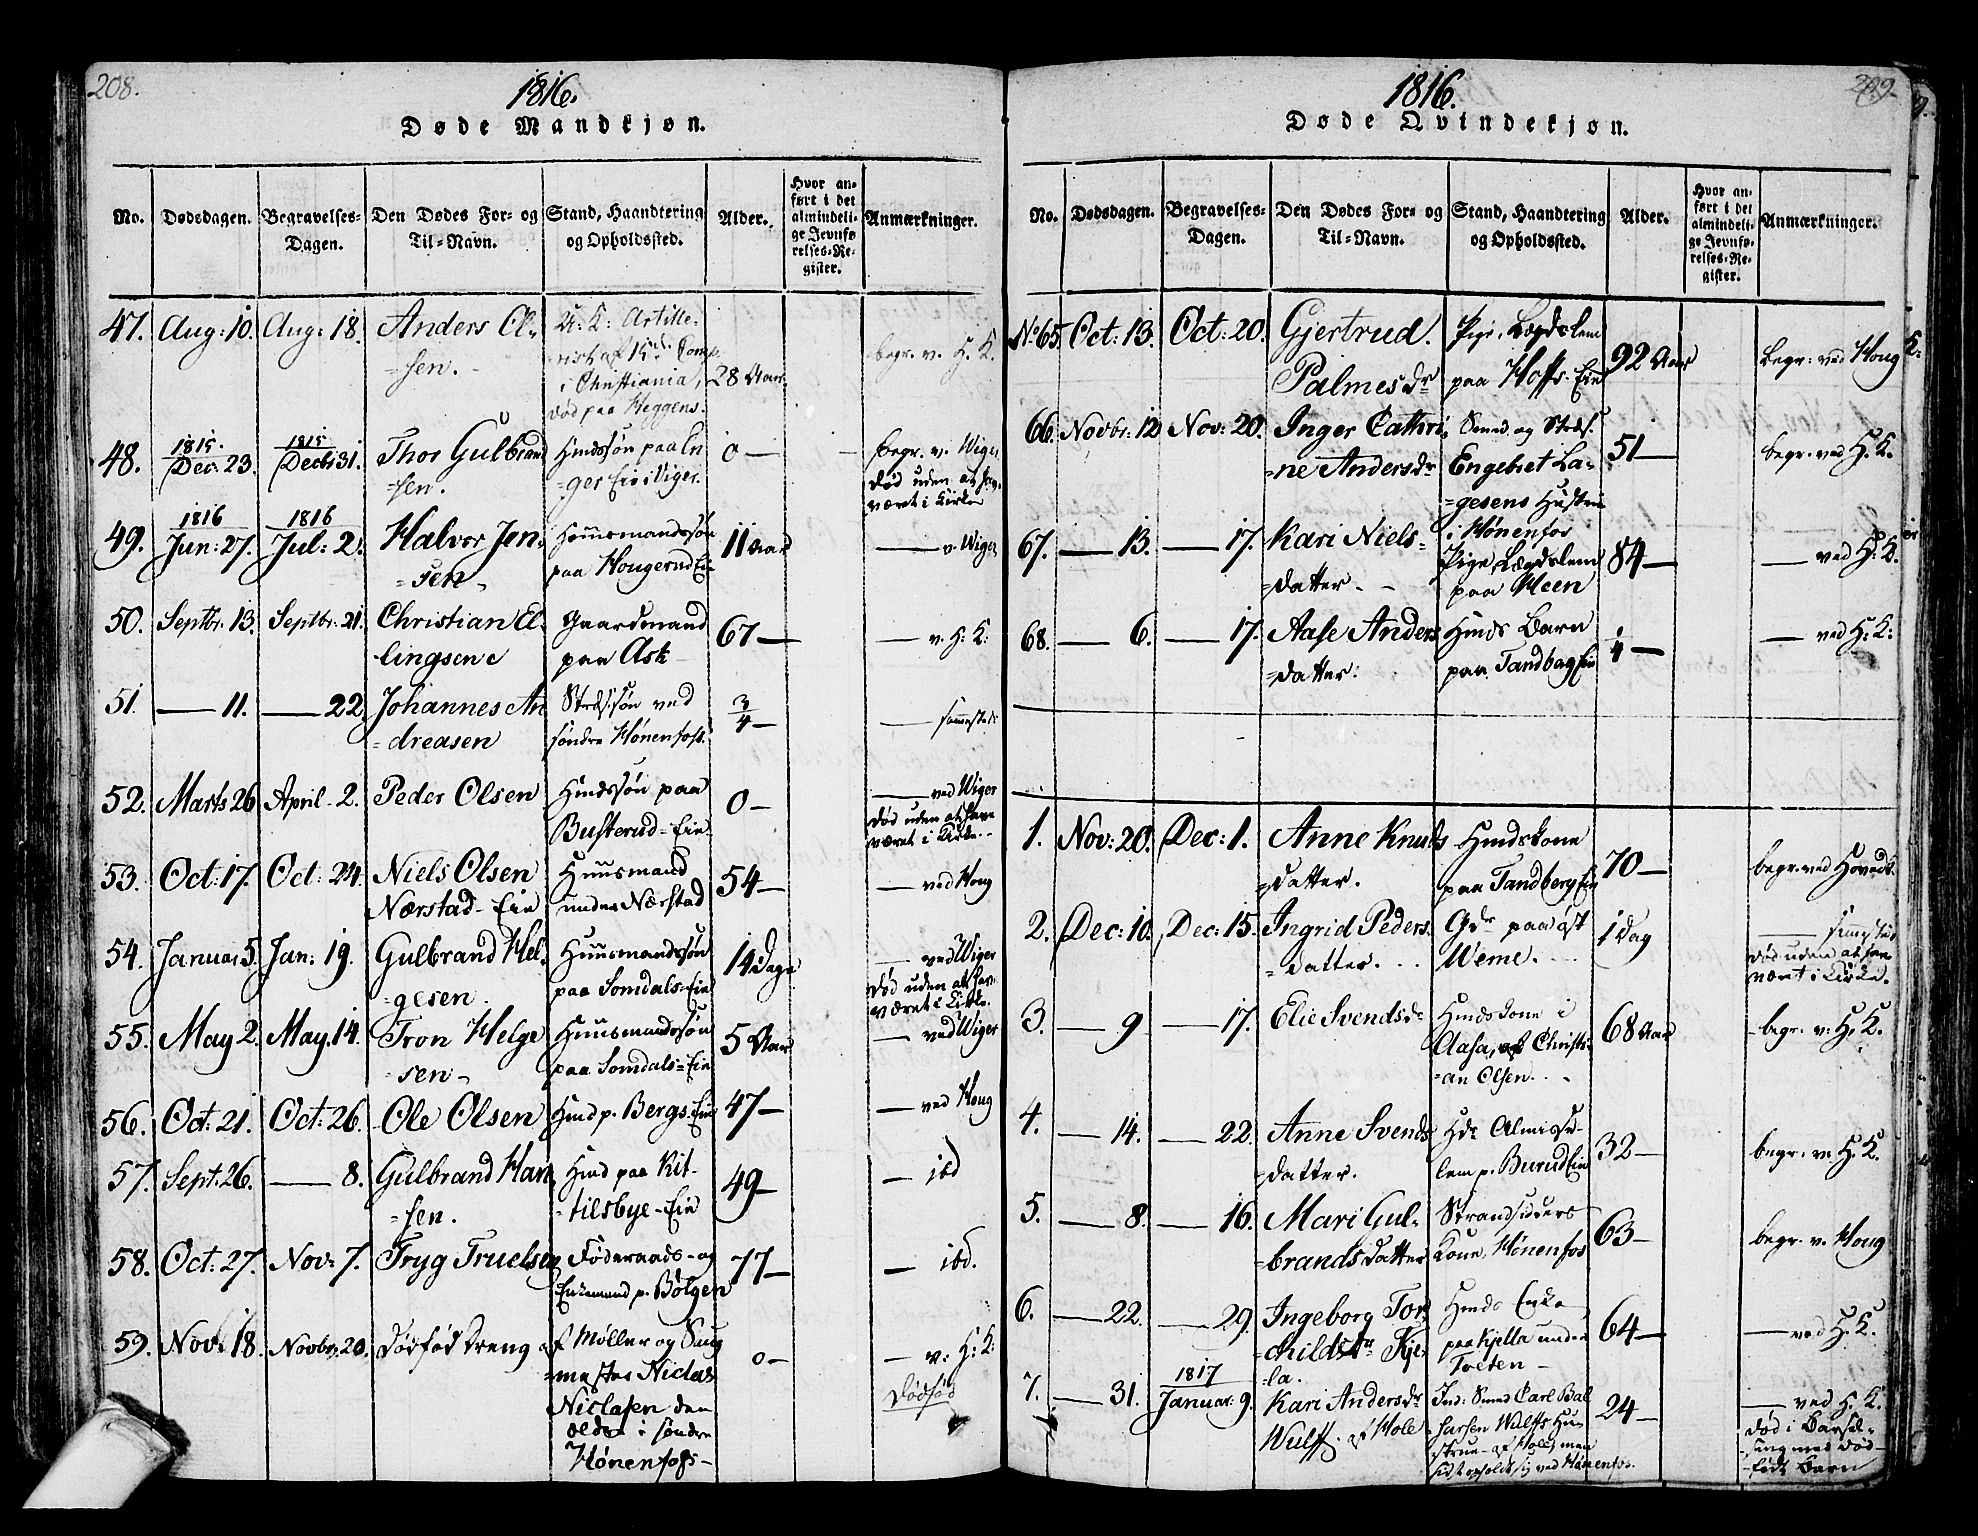 208.
1816.
Døde Mandkjøn.
No. Dødsdagen. Begravelses-Dagen. Den Dødes For- og Til-Navn. Stand, Haandtering og Opholdssted. Alder. Hvor anført i det almindelige Jevnførelses-Register. Anmærkninger.
47. Aug: 10. Aug: 18. Anders Ol-
=sen. 28 Aar. begr. v. H. K.
i Christiania,
død paa Heggens.
48. 1815. Dec: 23. 1815 Decbr 31. Thor Gulbrand
=sen. Hmdssøn paa In
=ger Eie i Viger. 0 — begr. v. Wiger
død uden at hav.
været i Kirke
49. 1816 Jun: 27. 1816 Jul: 2. Halvor Jen-
=sen Huusmandssøn
paa Hougerud Eie 11 Aar — v. Wiger
50. Septbr. 13. Septbr. 21. Christian El-
lingsen Gaardmand
paa Ask 67 — — v. H: K:
51. — 11. — 22. Johannes An
=dreasen Strdssøn ved
søndre Hønenfoss. 3/4 — — sammesteds
52. Marts 26 April. 2. Peder Olsen Hmdssøn paa
Busterud=Eie 0 — — ved Wiger
død uden at have
været i Kirke.
53. Oct: 17. Oct: 24. Niels Olsen
Nærstad-Eie Huusmand
under Nærstad 54 — — ved Houg
54. Januar 5. Jan: 19. Gulbrand Hel-
=gesen. Huusmandssøn
paa Somdals=Eie 14 Dage — ved Wiger
død uden at hav.
været i Kirke.
55. May 2. May. 14. Tron Helge
=sen Huusmandssøn
paa Somdals=Eie 5 Aar — ved Wiger
56. Oct: 21. Oct: 26. Ole Olsen Hmd p. Bergs Eie 47 — — ved Houg
57. Sept: 26. — 8. Gulbrand Han
=sen. Hmd paa Kit-
=tilsbye-Eie 49 — — ibd
58. Oct: 27. Nov: 7. Tryg Truelsen Føderaads- og
Enkemand p. Bølgen 77 — — ibd.
59. Nov: 18. Novbr. 20. Dødfød Dreng af Møller og Saug
=mester Niclas
Niclasen den
ældre i søndre
Hønenfoss- 0 — — v. H: K:
Dødfød
209.
1816.
Døde Qvindekjøn.
No. Dødsdagen. Begravelses-Dagen. Den Dødes For- og Til-Navn. Stand, Haandtering og Opholdssted. Alder. Hvor anført i det almindelige Jevnførelses-Register. Anmærkninger.
No 65. Oct: 13. Oct: 20. Gjertrud
Palmesdr Pige, Lægdslem
paa Hoffs-Eie 92 Aar begr: ved Houg K:
66. Novbr: 12 Nov: 20. Inger Cathri
=ne Andersdr Smed og Strds.
Engebret La-
=gesens Hustrue
i Hønenfos 51 — begr. ved H. K.
67. — 13. — 17. Kari Niels-
=datter. Pige, Lægdslem
paa Meen 84 — — ved H: K.
68. — 6. — 17. Aase Anders
=datter. Hmds Barn
paa Tandberg Eie 1/4 — — ved H: K:
1. Nov: 20. Dec: 1. Anne Knuds
=datter. Hmdskone
paa Tandberg Eie 70 — begr. ved Hovedk.
2. Dec: 10. Dec: 15. Ingrid Peders
=datter. Gdr paa øst
Weme. 1 Dag —
død uden at hav
været i Kirke.
3. — 9 — 17. Elie Svendsdr Hmdskone i
Aasa, af Christi-
=an Olsen. 68 Aar - begr. v: H. K.
4. — 14. — 22. Anne Svends
=datter. Hdr Almisse-
lem p. Burud Eie 32 — begr. v. H. K.
5. — 8. — 16. Mari Gul-
=brandsdatter Strandsidders
Kone, Hønenfos 63 — begr. v. Houg
6. — 22. — 29. Ingeborg Tor
=childsdr Kje-
=la. Hmds Enke
paa Kjella under
Tolten — 64 — — ved H. K.
7. — 31. 1817 Januar. 9. Kari Andersdr
Wulff. af Hole Ind: Smed Carl Bal
harsen Wulffs Hus
strue af Hole, men
sidst opholdt sig ved Hønenfos. 24 — — ved H. K.
død i Barsel-
seng med død-
født Barn